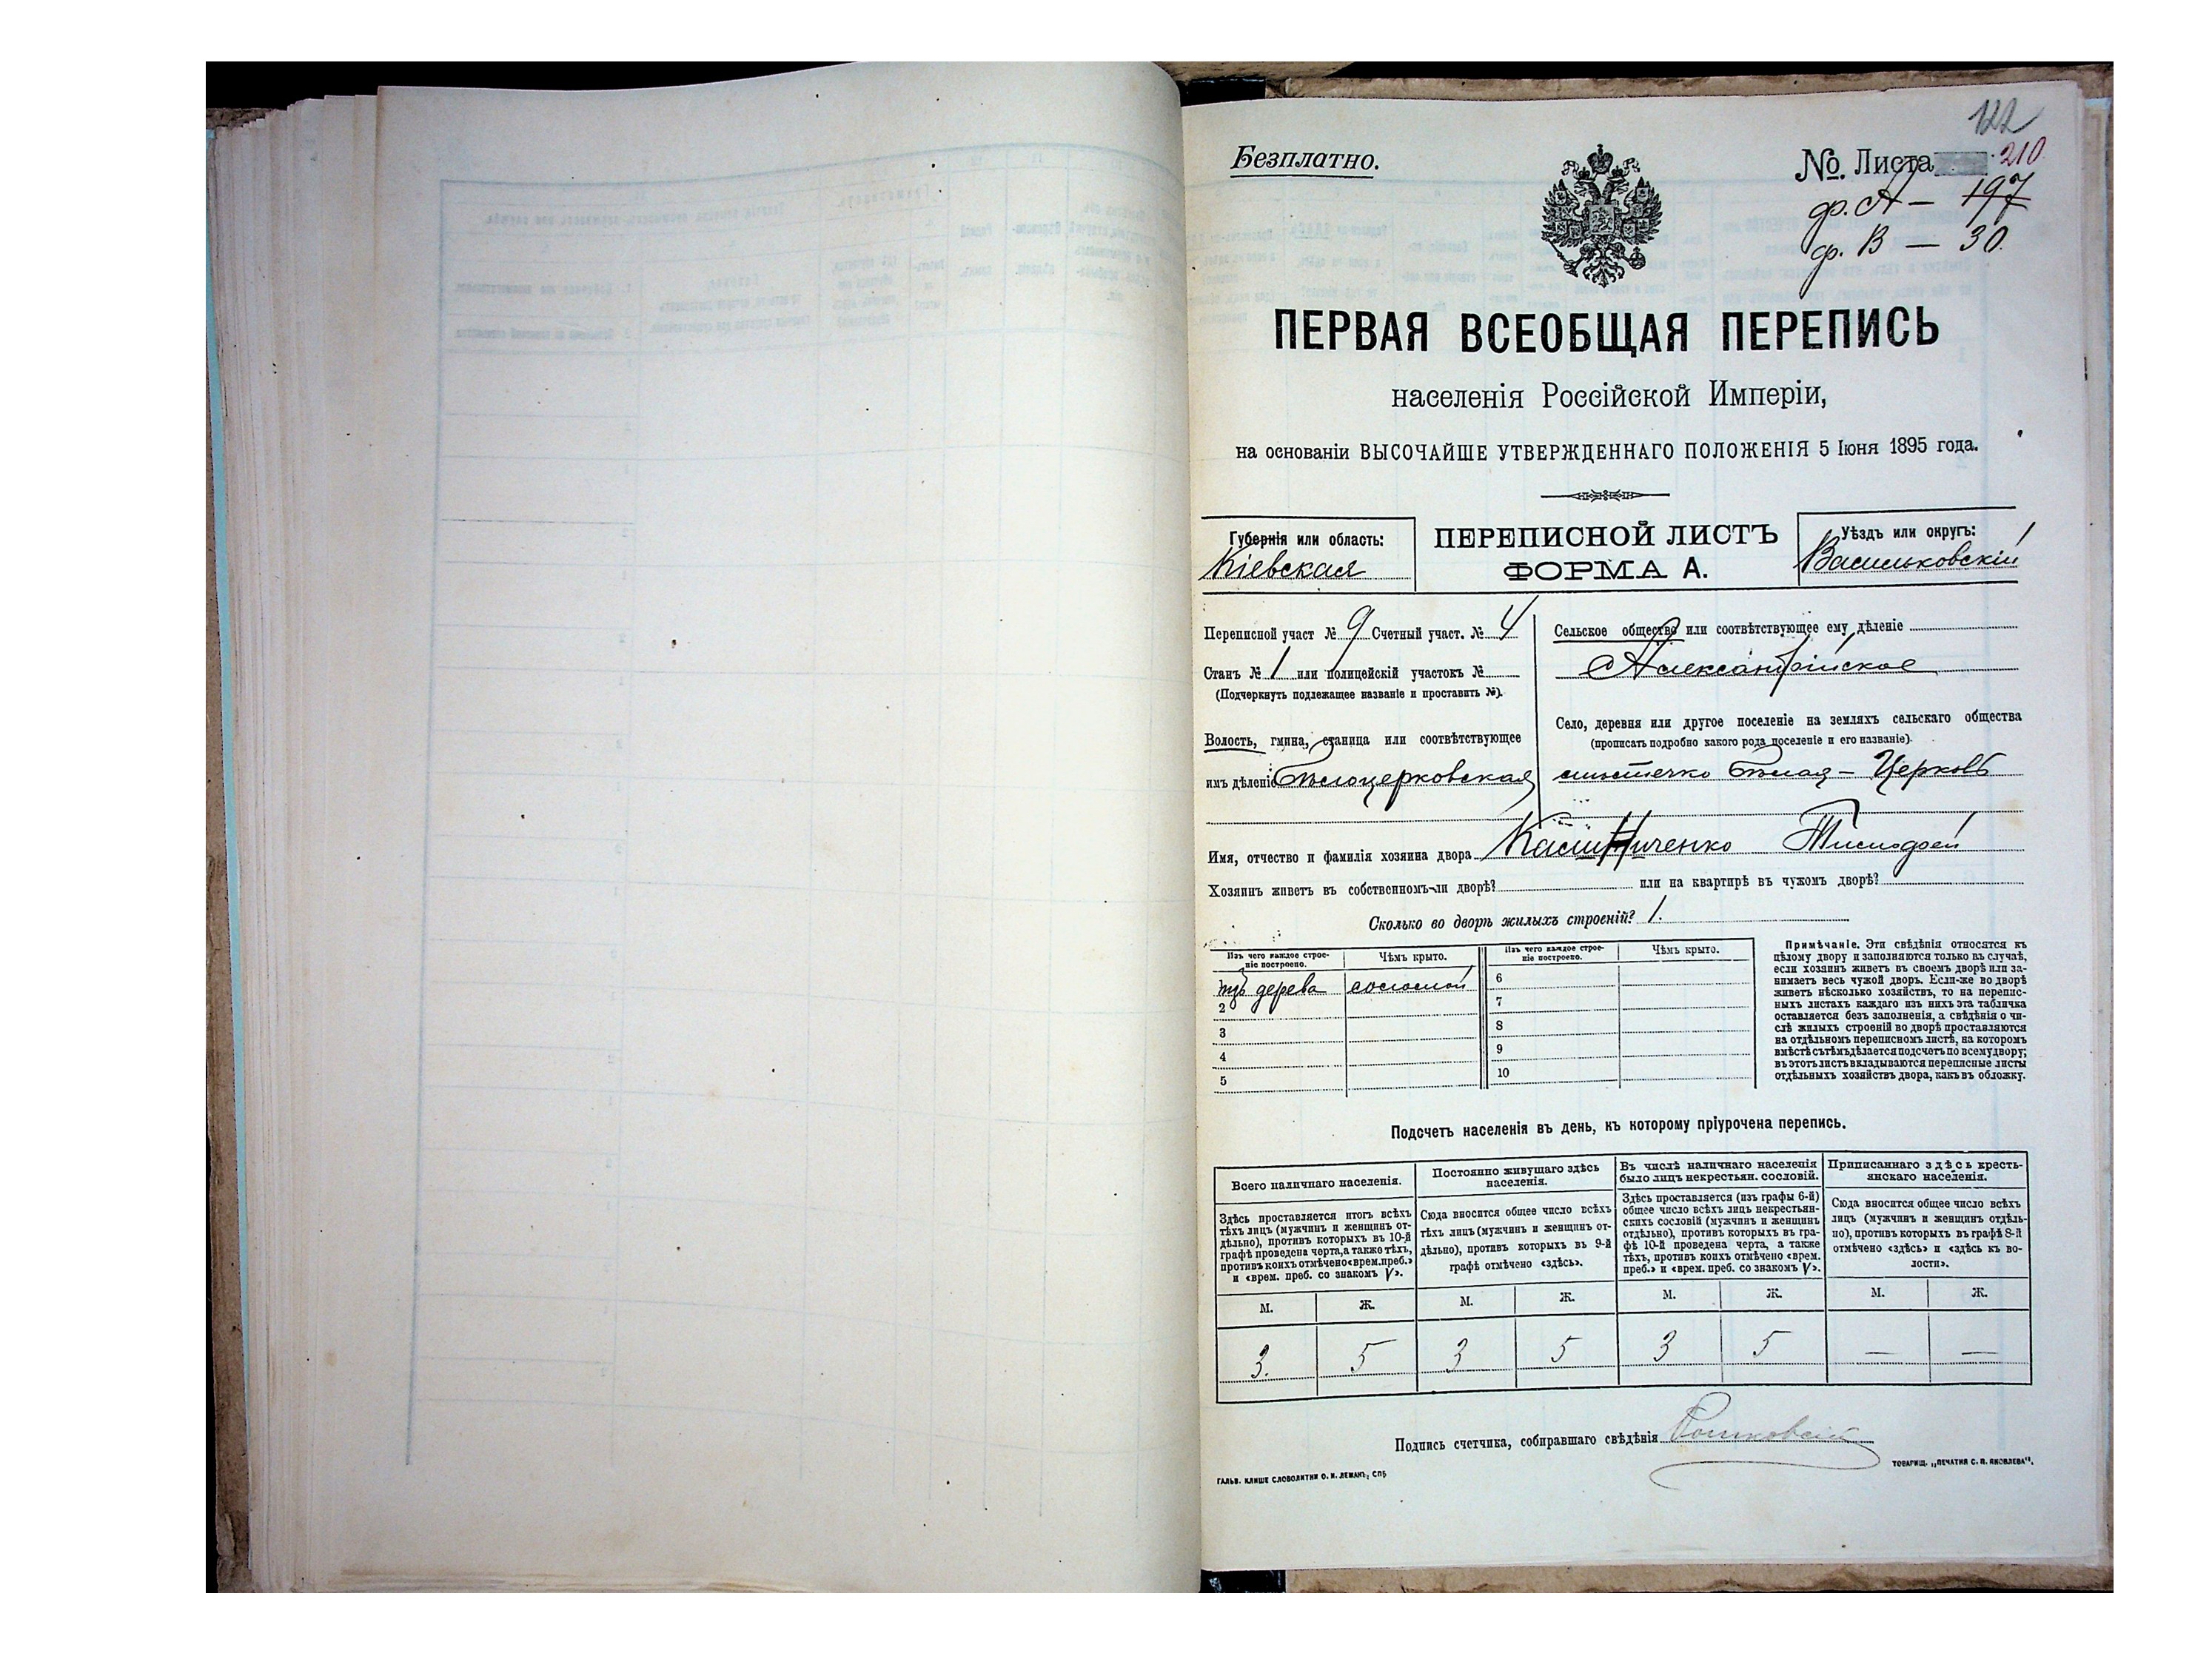 122
Безплатно.
№ Листа 210.
ф. А — 197
ф. В — 30.
ПЕРВАЯ ВСЕОБЩАЯ ПЕРЕПИСЬ
населенія Россійской Имперіи,
на основаніи ВЫСОЧАЙШЕ УТВЕРЖДЕННАГО ПОЛОЖЕНІЯ 5 Іюня 1895 года.
Губернія или область:
Кіевская
ПЕРЕПИСНОЙ ЛИСТЪ
ФОРМА А.
Уѣздъ или округъ:
Васильковскій
Переписной участ № 9 Счетный участ. № 4
Станъ № 1 или полицейскій участокъ №
(Подчеркнуть подлежащее названіе и проставить №).
Волость, гмина, станица или соотвѣтствующее
имъ дѣленіе Бѣлоцерковская
Сельское общество или соотвѣтствующее ему дѣленіе
Александрійское
Село, деревня или другое поселеніе на земляхъ сельскаго общества
(прописать подробно какого рода поселеніе и его названіе).
мѣстечко Бѣлая-Церковь
Имя, отчество и фамилія хозяина двора Тимофей
Хозяинъ живетъ въ собственномъ-ли дворѣ? или на квартирѣ въ чужомъ дворѣ?
Сколько во дворѣ жилыхъ строеній? 1.
Изъ чего каждое строе-
ніе построено.
Чѣмъ крыто.
Изъ чего каждое строе-
ніе построено.
Чѣмъ крыто.
изъ дерева соломой 6
2 7
3 8
4 9
5 10
Примѣчаніе. Эти свѣдѣнія относятся къ
цѣлому двору и заполняются только въ случаѣ,
если хозяинъ живетъ въ своемъ дворѣ или за-
нимаетъ весь чужой дворъ. Если-же во дворѣ
живетъ нѣсколько хозяйствъ, то на перепис-
ныхъ листахъ каждаго изъ нихъ эта табличка
оставляется безъ заполненія, а свѣдѣнія о чи-
слѣ жилыхъ строеній во дворѣ проставляются
на отдѣльномъ переписномъ листѣ, на которомъ
вмѣстѣ съ тѣмъ дѣлается подсчетъ по всему двору;
въ этотъ листъ вкладываются переписные листы
отдѣльныхъ хозяйствъ двора, какъ въ обложку.
Подсчетъ населенія въ день, къ которому пріурочена перепись.
Всего наличнаго населенія.
Здѣсь проставляется итогъ всѣхъ
тѣхъ лицъ (мужчинъ и женщинъ от-
дѣльно), противъ которыхъ въ 10-й
графѣ проведена черта, а также тѣхъ,
противъ коихъ отмѣчено «врем. преб.»
и «врем. преб. со знакомъ V».
Постоянно живущаго здѣсь
населенія.
Сюда вносится общее число всѣхъ
тѣхъ лицъ (мужчинъ и женщинъ от-
дѣльно), противъ которыхъ въ 9-й
графѣ отмѣчено «здѣсь».
Въ числѣ наличнаго населенія
было лицъ некрестьян. сословій.
Здѣсь проставляется (изъ графы 6-й)
общее число всѣхъ лицъ некрестьян-
скихъ сословій (мужчинъ и женщинъ
отдѣльно), противъ которыхъ въ гра-
фѣ 10-й проведена черта, а также
тѣхъ, противъ коихъ отмѣчено «врем.
преб.» и «врем. преб. со знакомъ V».
Приписаннаго здѣсь кресть-
янскаго населенія.
Сюда вносится общее число всѣхъ
лицъ (мужчинъ и женщинъ отдѣль-
но), противъ которыхъ въ графѣ 8-й
отмѣчено «здѣсь» и «здѣсь къ во-
лости».
М. Ж. М. Ж. М. Ж. М. Ж.
3. 5 3 5 3 5 — —
Подпись счетчика, собиравшаго свѣдѣнія
ГАЛЬВ. КЛИШЕ СЛОВОЛИТНИ О. И. ЛЕМАНЪ, СПБ
ТОВАРИЩ. „ПЕЧАТНЯ С. П. ЯКОВЛЕВА".